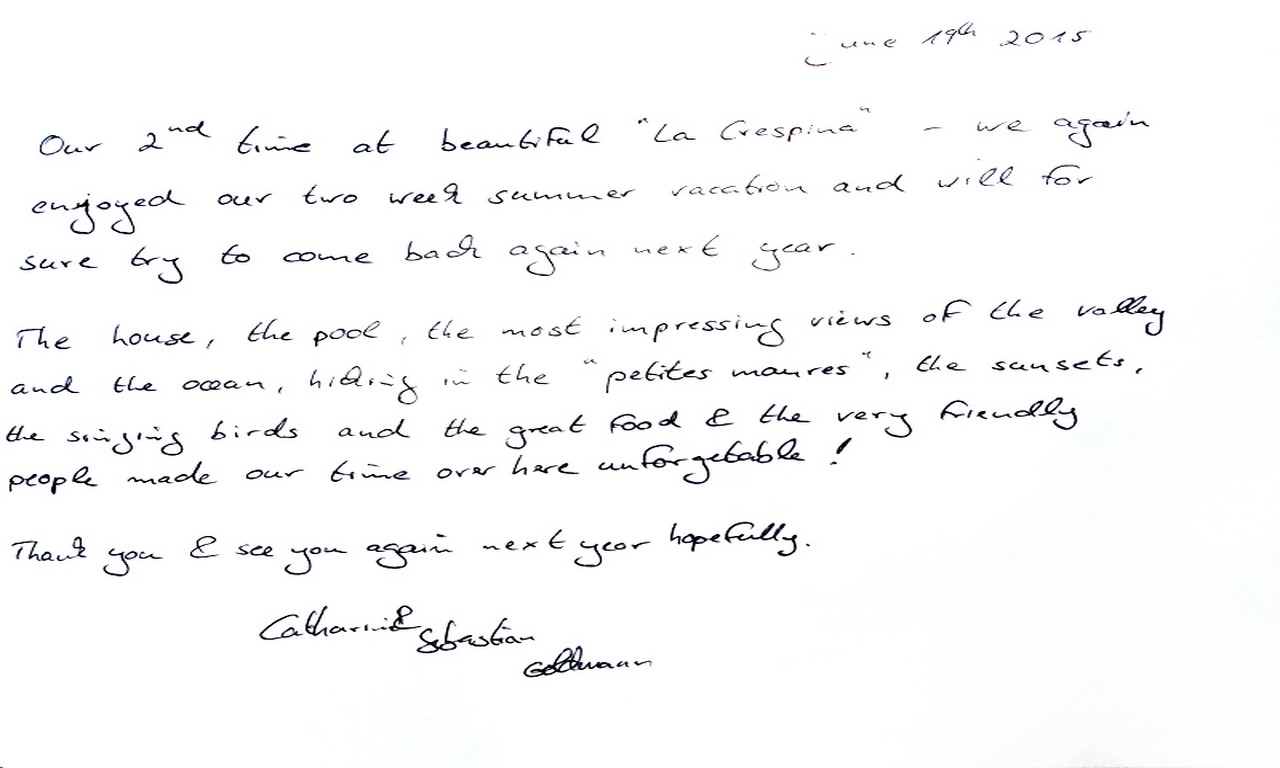 june 19th 2015
Our 2nd time at beautiful "La Crespina" - we again
enjoyed our two week summer vacation and will for
sure try to come back again next year.
The house, the pool, the most impressing views of the valley
and the ocean, hiking in the "petites maures", the sunsets,
the singing birds and the great food & the very friendly
people made our time over here unforgetable!
Thank you & see you again next year hopefully.
&
Sebastian